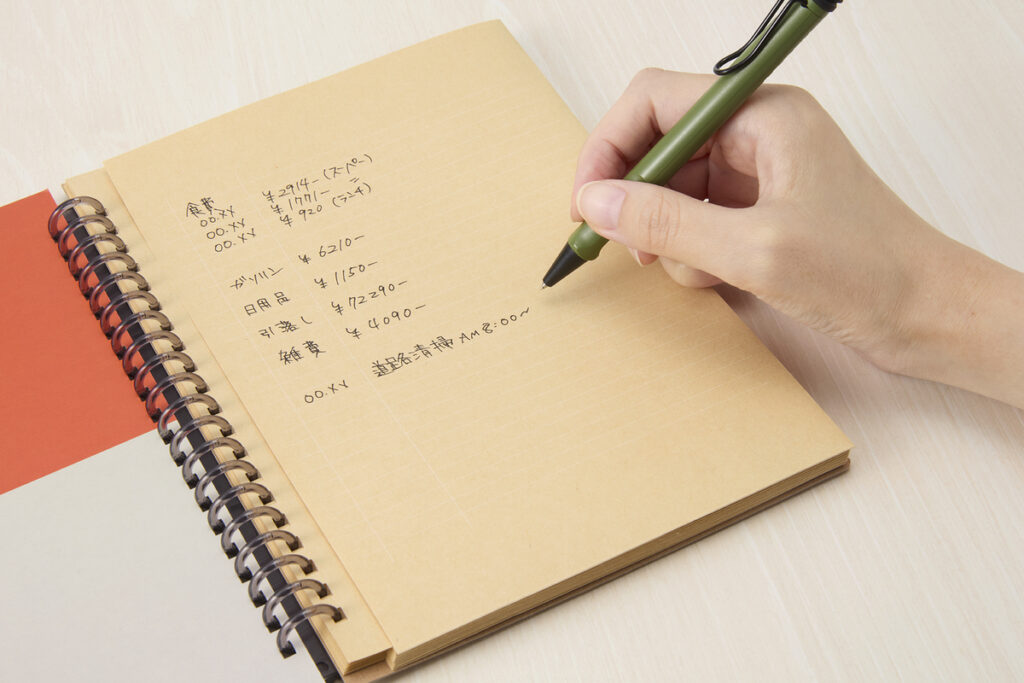 食費
00.XY ¥2914-(スーパー)
00.XY ¥1771- 〃
00.XY ¥920 (ランチ)
ガソリン ¥6210-
日用品 ¥1150-
引落し ¥72290-
雑費 ¥4090-
00.XY 道路清掃 AM8:00~